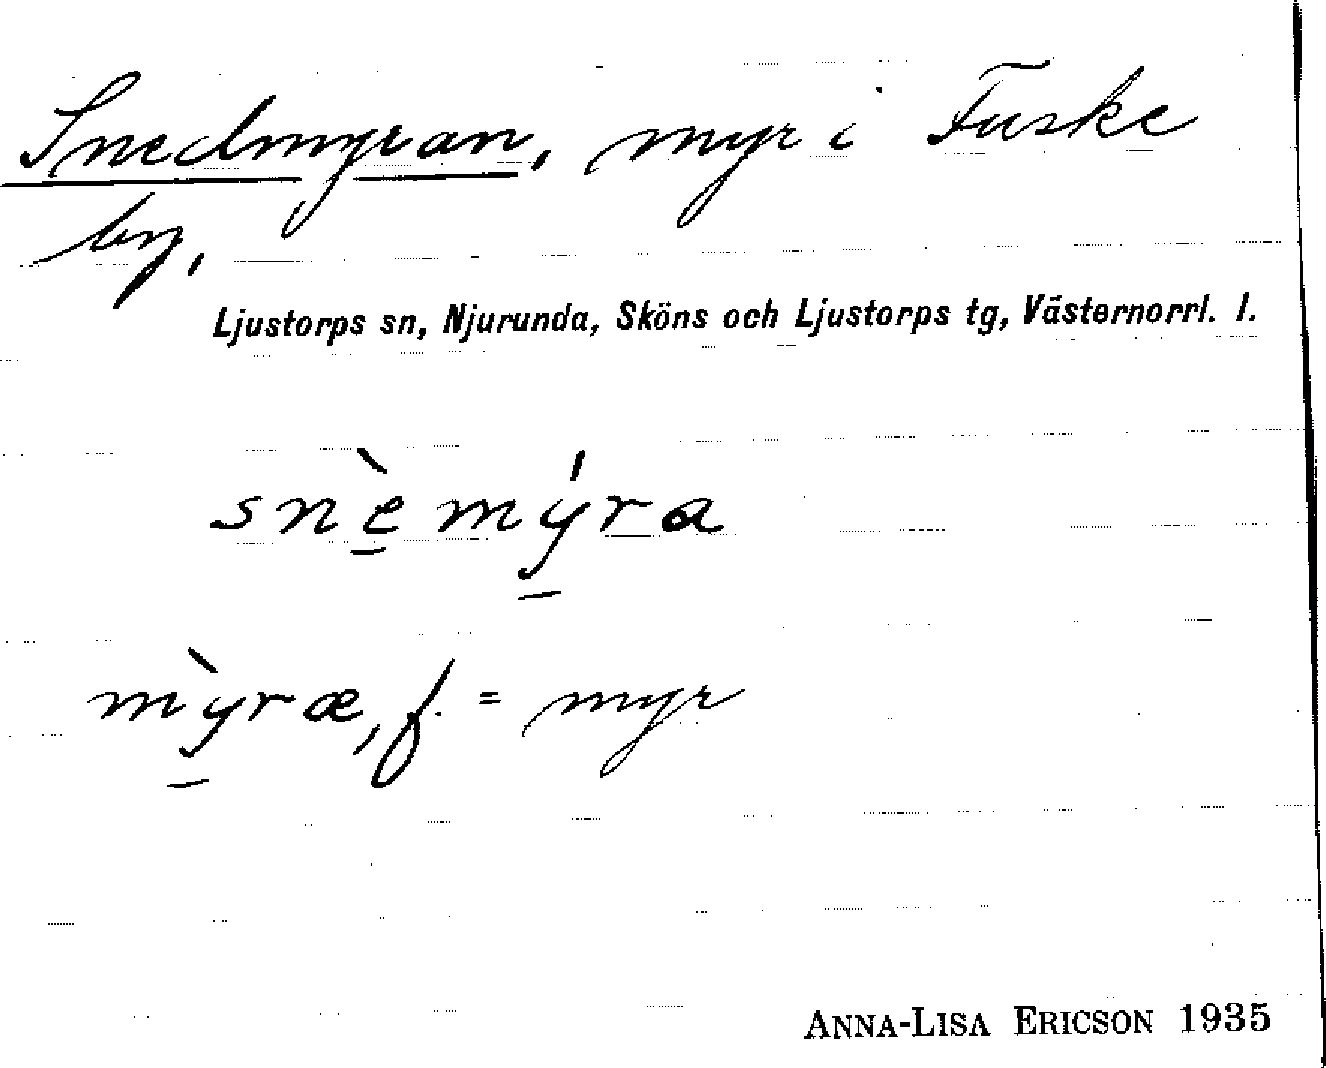 Snedmyran, myr i Fuske
by,
Ljustorps sn, Njurunda, Sköns och Ljustorps tg, Västernorrl. l.
snè̱mý̱ra
mỳ̱ræ, f. = myr
ANNA-LISA ERICSON 1935